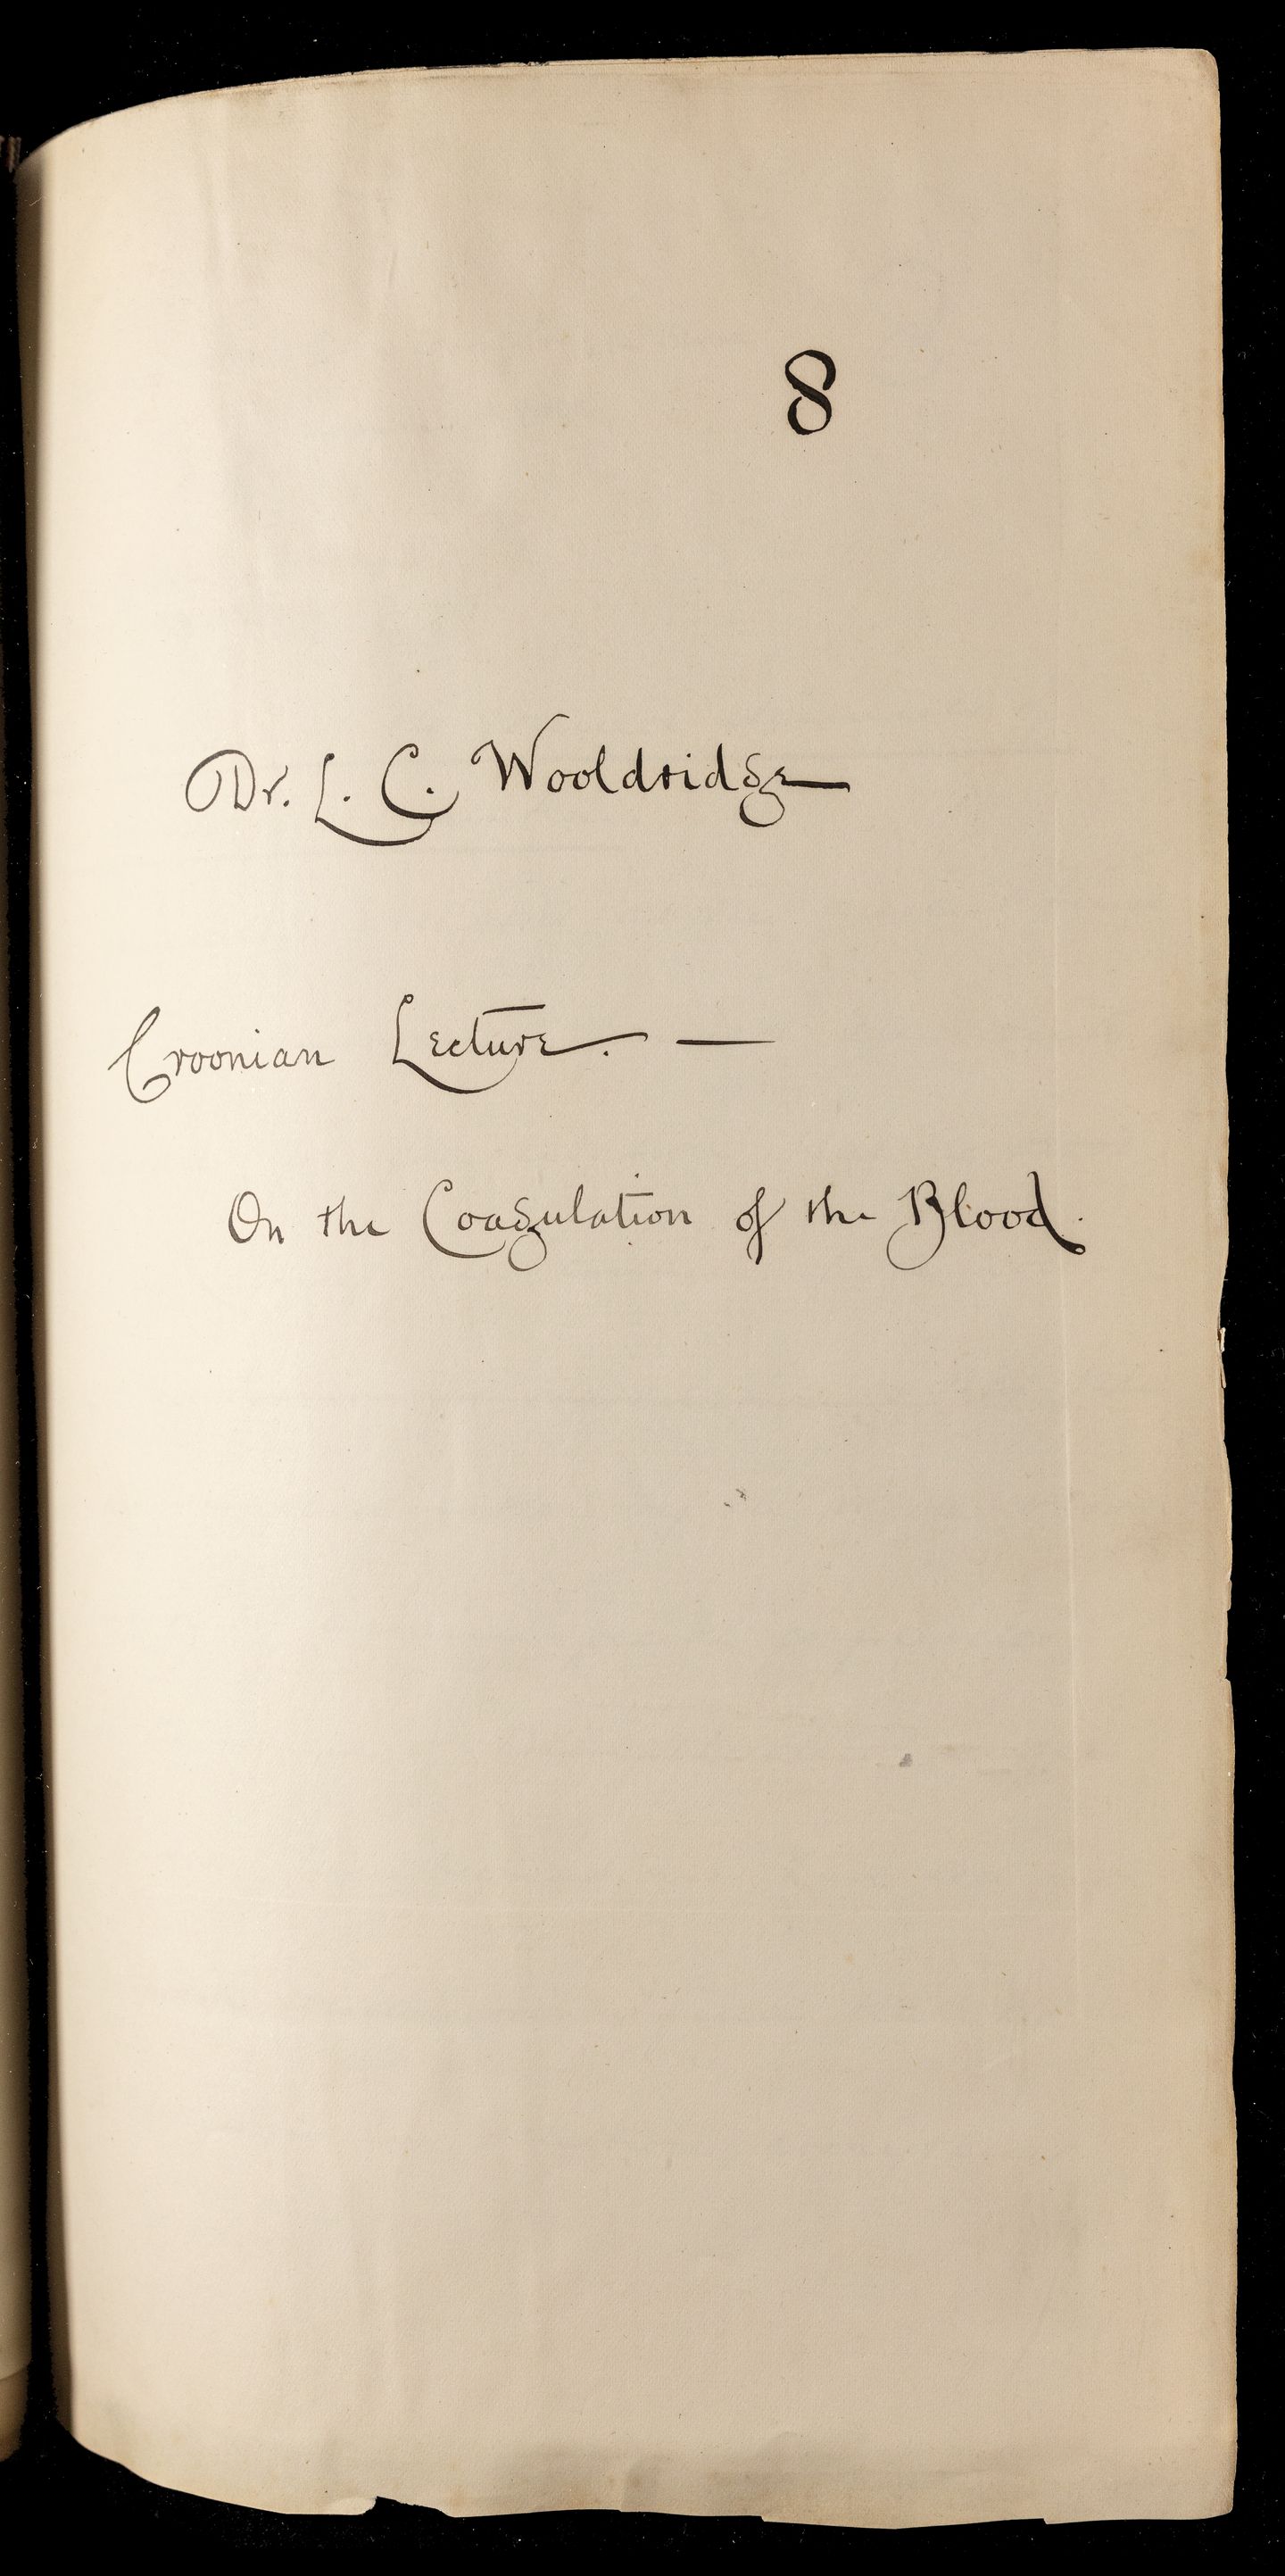 8
Dr. L. C. Wooldridge
Croonian Lecture. —
On the Coagulation of the Blood.